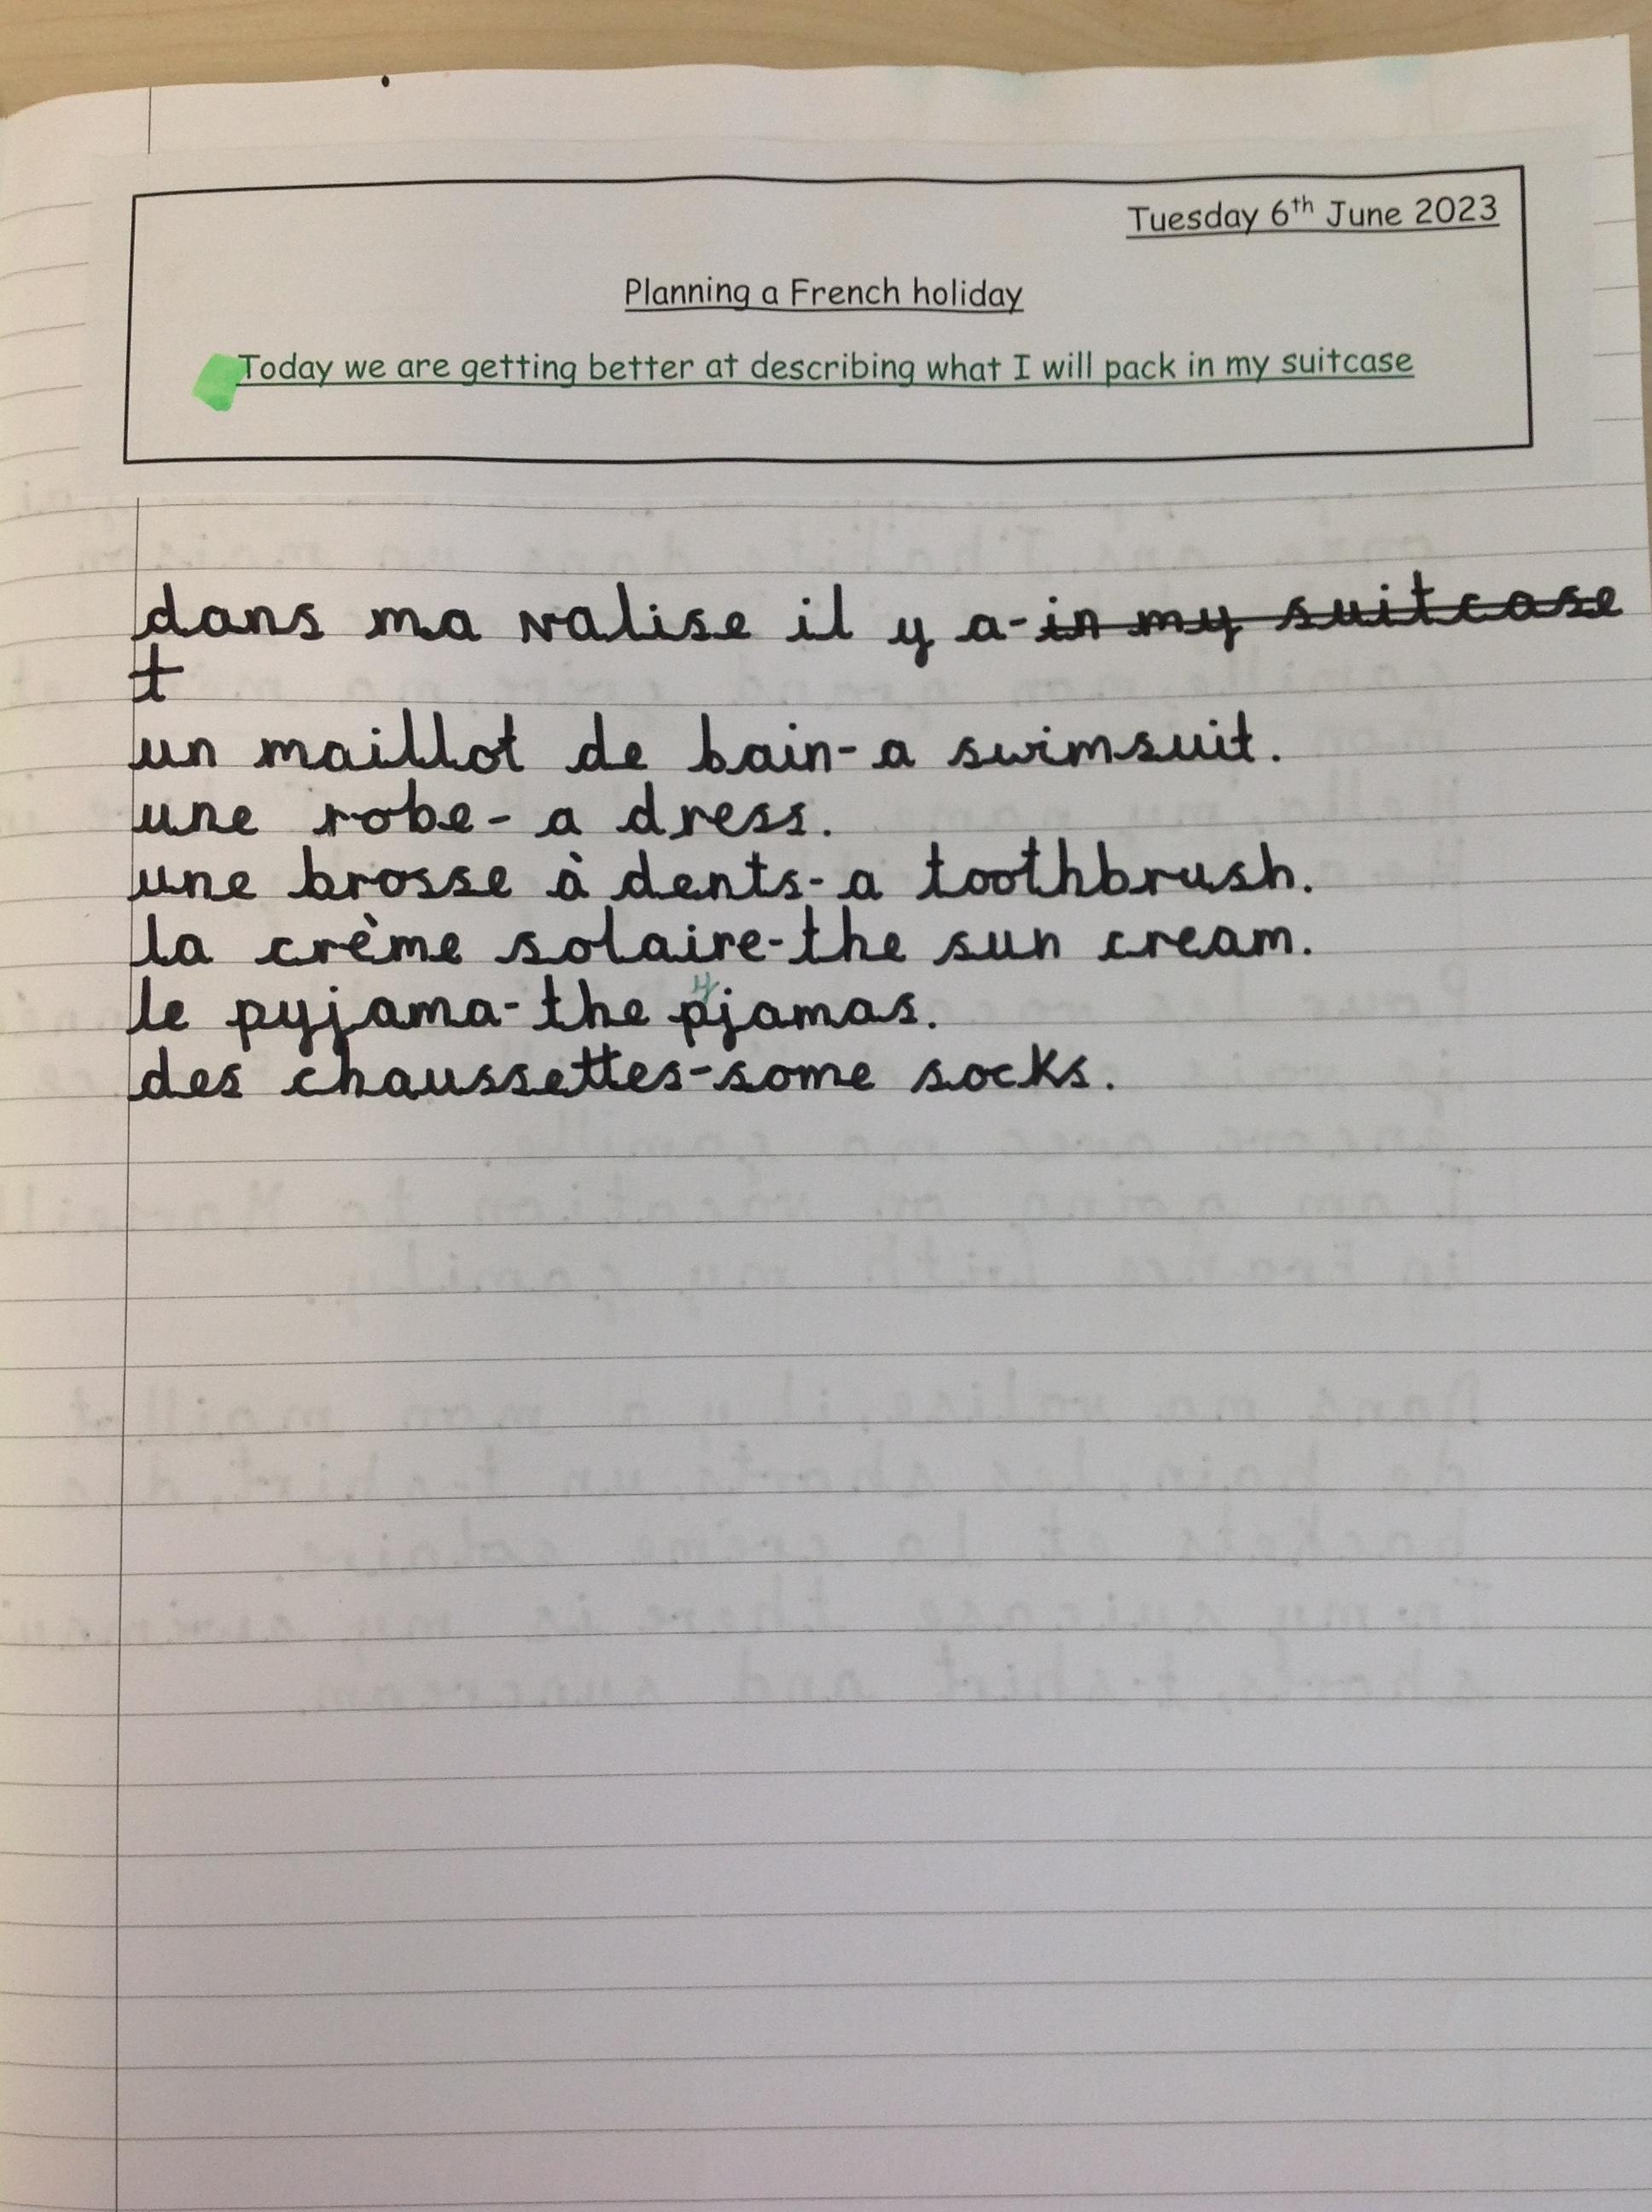 Tuesday 6th June 2023
Planning a French holiday
Today we are getting better at describing what I will pack in my suitcase
dans ma valise il y a-in my suitcase
t
un maillot de bain-a swimsuit.
une robe-a dress.
une brosse à dents-a toothbrush.
la crème solaire-the sun cream.
le pyjama-the pyjamas.
des chaussettes-some socks.